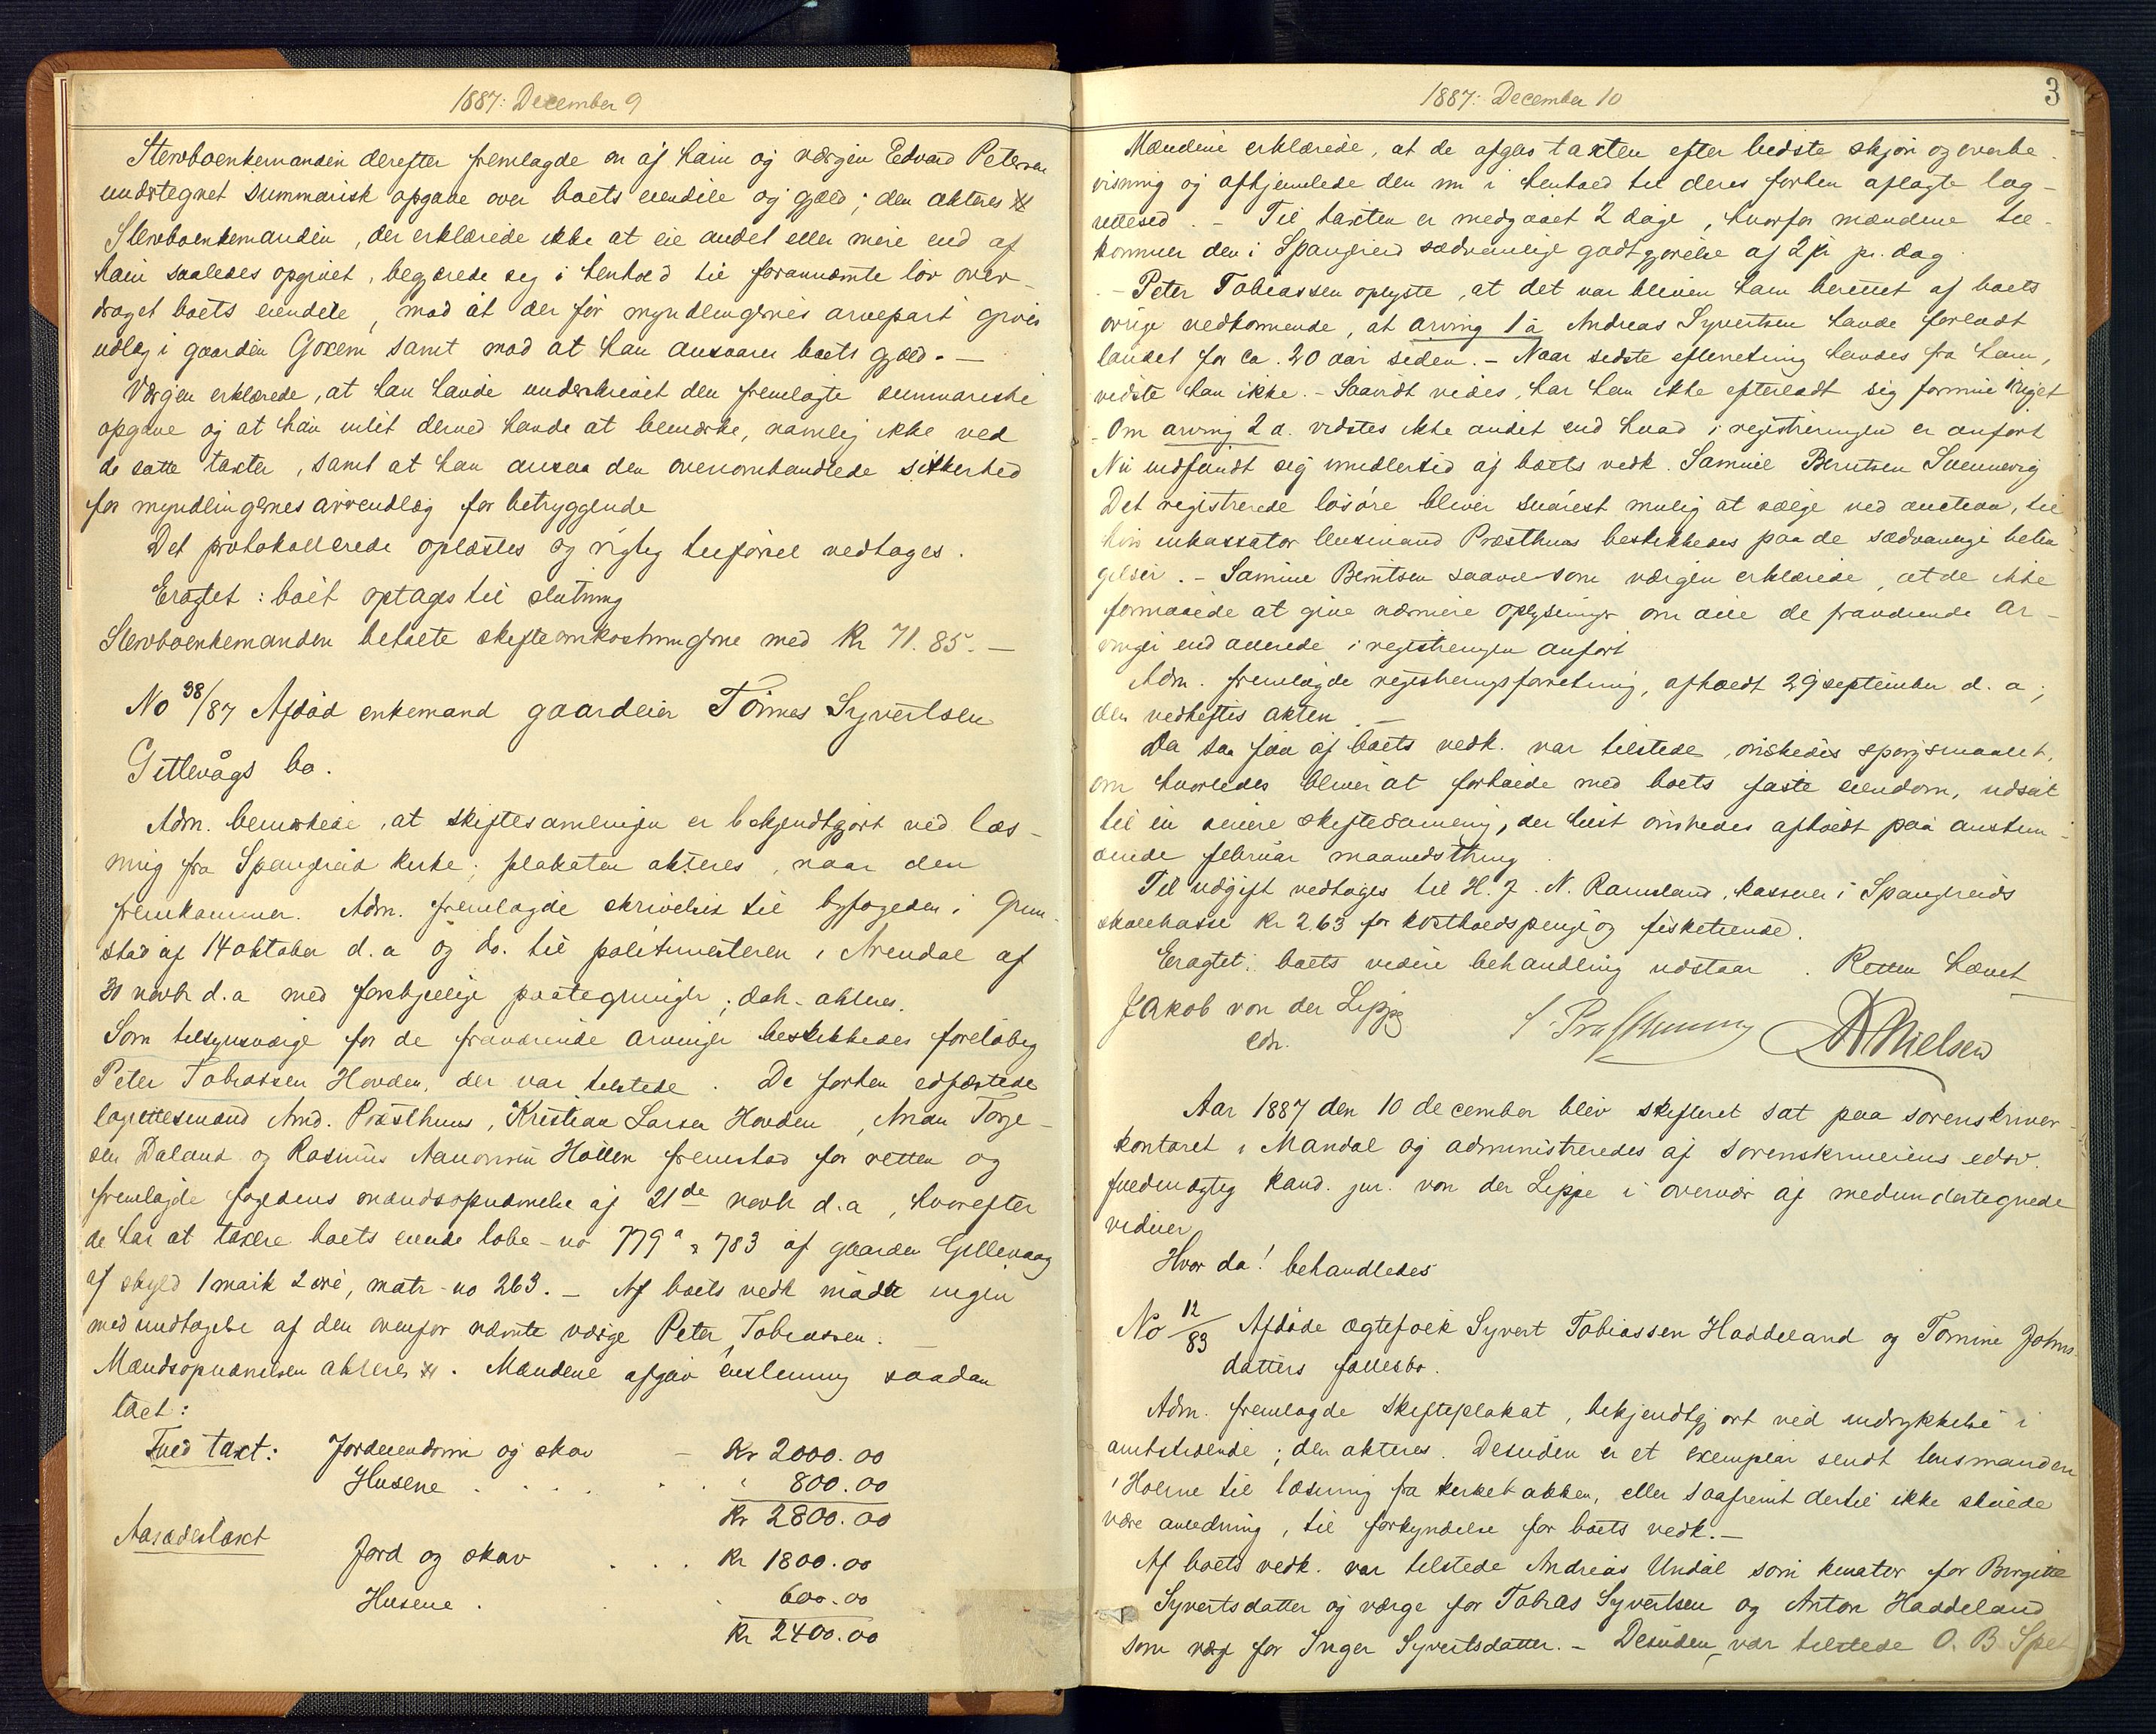 1887: December 9
Stervboenkemanden derefter fremlagde en af ham og værgen Edvard Petersen
undertegnet summarisk opgave over boets eiendele og gjæld; den akteres
Stervboenkemanden, der erklærede ikke at eie andet eller mere end af
ham saaledes opgivet, begjærede sig i henhold til forannævnte lov over-
draget boets eiendele, mod at der for myndlingernes arvepart gives
udlæg i gaarden Goxem samt mod at han ansvarer boets gjæld. —
Værgen erklærede, at han havde underskrevet den fremlagte summariske
opgave og at han intet derved havde at bemærke, navnlig ikke ved
de satte taxter, samt at han ansaa den ovenomhandlede sikkerhed
for myndlingernes arveudlæg for betryggende
Det protokollerede oplæstes og rigtig tilført vedtages.
Eragtet: boet optages til slutning
Stervboenkemanden betalte skifteomkostningerne med Kr 71.85. —
No 38/87 Afdød enkemand gaardeier Tönnes Syvertsen
Gitlevågs bo.
Adm. bemærkede, at skiftesamlingen er bekjendtgjort ved læs-
ning fra Spangreid kirke; plakaten akteres, naar den
fremkommer. Adm. fremlagde skrivelse til byfogeden i Grim-
stad af 14 oktober d.a og do. til politimesteren i Arendal af
30 novbr d.a med forskjellige paategninger; dok. akteres.
Som tilsynsværge for de fraværende arvinger beskikkedes foreløbig
Peter Tobiassen Hovden, der var tilstede. De forhen edfæstede
lagrettesmænd And. Præsthuus, Kristian Larsen Hovden, Anan Torge-
sen Daland og Rasmus Aanonsen Hollen fremstod for retten og
fremlagde fogedens mandsopnævnelse af 21de novbr d.a, hvorefter
de har at taxere boets eiende løbe-no 779a & 783 af gaarden Gitlevaag
af skyld 1 mark 2 øre, matr-no 263. — Af boets vedk mødte ingen
med undtagelse af den ovenfor nævnte værge Peter Tobiassen.
Mandsopnævnelsen akteres. Mændene afgav eenstemmig saadan
taxt:
Fuld taxt: Jordeiendom og skov — Kr 2000.00
Husene . . . . . . " 800.00
Kr 2800.00
Aasædestaxt
Jord og skov . . . Kr 1800.00
Husene . . . 600.00
Kr 2400.00
1887: December 10
3
Mændene erklærede, at de afgav taxten efter bedste skjøn og overbe-
visning og afhjemlede den nu i henhold til deres forhen aflagte lag-
rettesed. — Til taxten er medgaaet 2 dage, hvorfor mændene til-
kommer den i Spangreid sædvanlige godtgjørelse af 2 kr pr. dag.
— Peter Tobiassen oplyste, at det var bleven ham berettet af boets
øvrige vedkommende, at arving 1 a Andreas Syvertsen havde forladt
landet for ca. 20 aar siden. — Naar sidste efterretning havdes fra ham,
vidste han ikke. — Saavidt vides, har han ikke efterladt sig formue i riget
Om arving 2 a. vidstes ikke andet end hvad i registreringen er anført
Nu indfandt sig imidlertid af boets vedk. Samuel Berntsen Svennevig
Det registrerede løsøre bliver snarest mulig at sælge ved auction, til
hvis inkassator lensmand Præsthuus beskikkedes paa de sædvanlige betin-
gelser. — Samuel Berntsen saavel som værgen erklærede, at de ikke
formaaede at give nærmere oplysninger om alle de fraværende ar-
vinger end allerede i registreringen anført
Adm. fremlagde registreringsforretning, afholdt 29 september d. a;
den vedheftes akten. —
Da saa faa af boets vedk. var tilstede, ønskedes spørgsmaalet,
om hvorledes bliver at forholde med boets faste eiendom, udsat
til en senere skiftesamling, der helst ønskedes afholdt paa anstun-
dende februar maanedsthing.
Til udgift vedtages til H. J. N. Ramsland, kasserer i Spangreids
skolekasse Kr 2.63 for kostholdspenge og fisketiende.
Eragtet: boets videre behandling udstaar. Retten hævet
Jakob von der Lippe
edv.
A Nielsen
Aar 1887 den 10 december blev skifteret sat paa sorenskriver-
kontoret i Mandal og administreredes af sorenskriverens edsv.
fuldmægtig kand. jur. von der Lippe i overvær af medundertegnede
vidner
Hvor da! behandledes
No 12/83 Afdøde ægtefolk Syvert Tobiassen Haddeland og Tomine Johns-
datters fællesbo.
Adm. fremlagde skifteplakat, bekjendtgjort ved indrykkelse i
amtstidende; den akteres. Desuden er et exemplar sendt lensmanden
i Holme til læsning fra kirkebakken, eller saafremt dertil ikke skulde
være anledning, til forkyndelse for boets vedk. —
Af boets vedk. var tilstede Andreas Undal som kurator for Birgitte
Syvertsdatter og værge for Tobias Syvertsen og Anton Haddeland
som værge for Inger Syvertsdatter. — Desuden var tilstede O. B. Spet